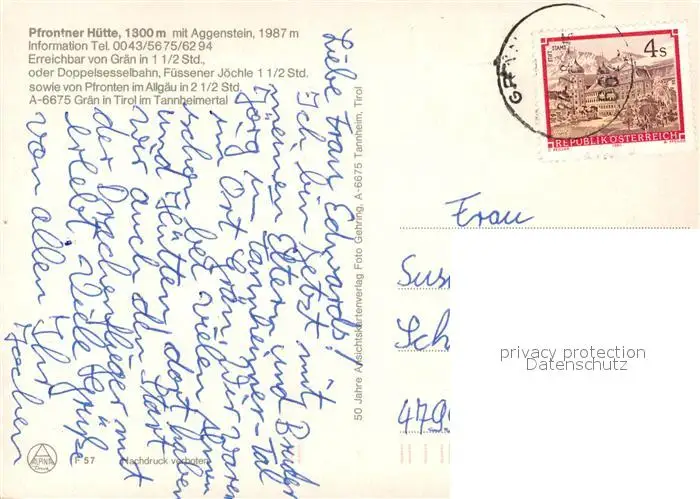 Pfrontner Hütte, 1300 m mit Aggenstein, 1987 m
Information Tel. 0043/5675/62 94
Erreichbar von Grän in 1 1/2 Std.,
oder Doppelsesselbahn, Füssener Jöchle 1 1/2 Std.
sowie von Pfronten im Allgäu in 2 1/2 Std.
A-6675 Grän in Tirol im Tannheimertal
Liebe Frau Edwards!
Ich bin jetzt mit
meinen Eltern und Bruder
Jörg im Tannheimer-Tal
im Ort Grän. Wir waren
schon bei vielen Almen
und Hütten, dort haben
wir auch den Start
der Drachenflieger mit
erlebt. Viele Grüße
von allen Ihr
Jochen
50 Jahre Ansichtskartenverlag Foto Gehring, A-6675 Tannheim, Tirol
STIFT STAMS
4 S
REPUBLIK ÖSTERREICH
GRÄN
Frau
Sus
Sch
479
privacy protection
Datenschutz
ALPINA
Druck
F 57
Nachdruck verboten